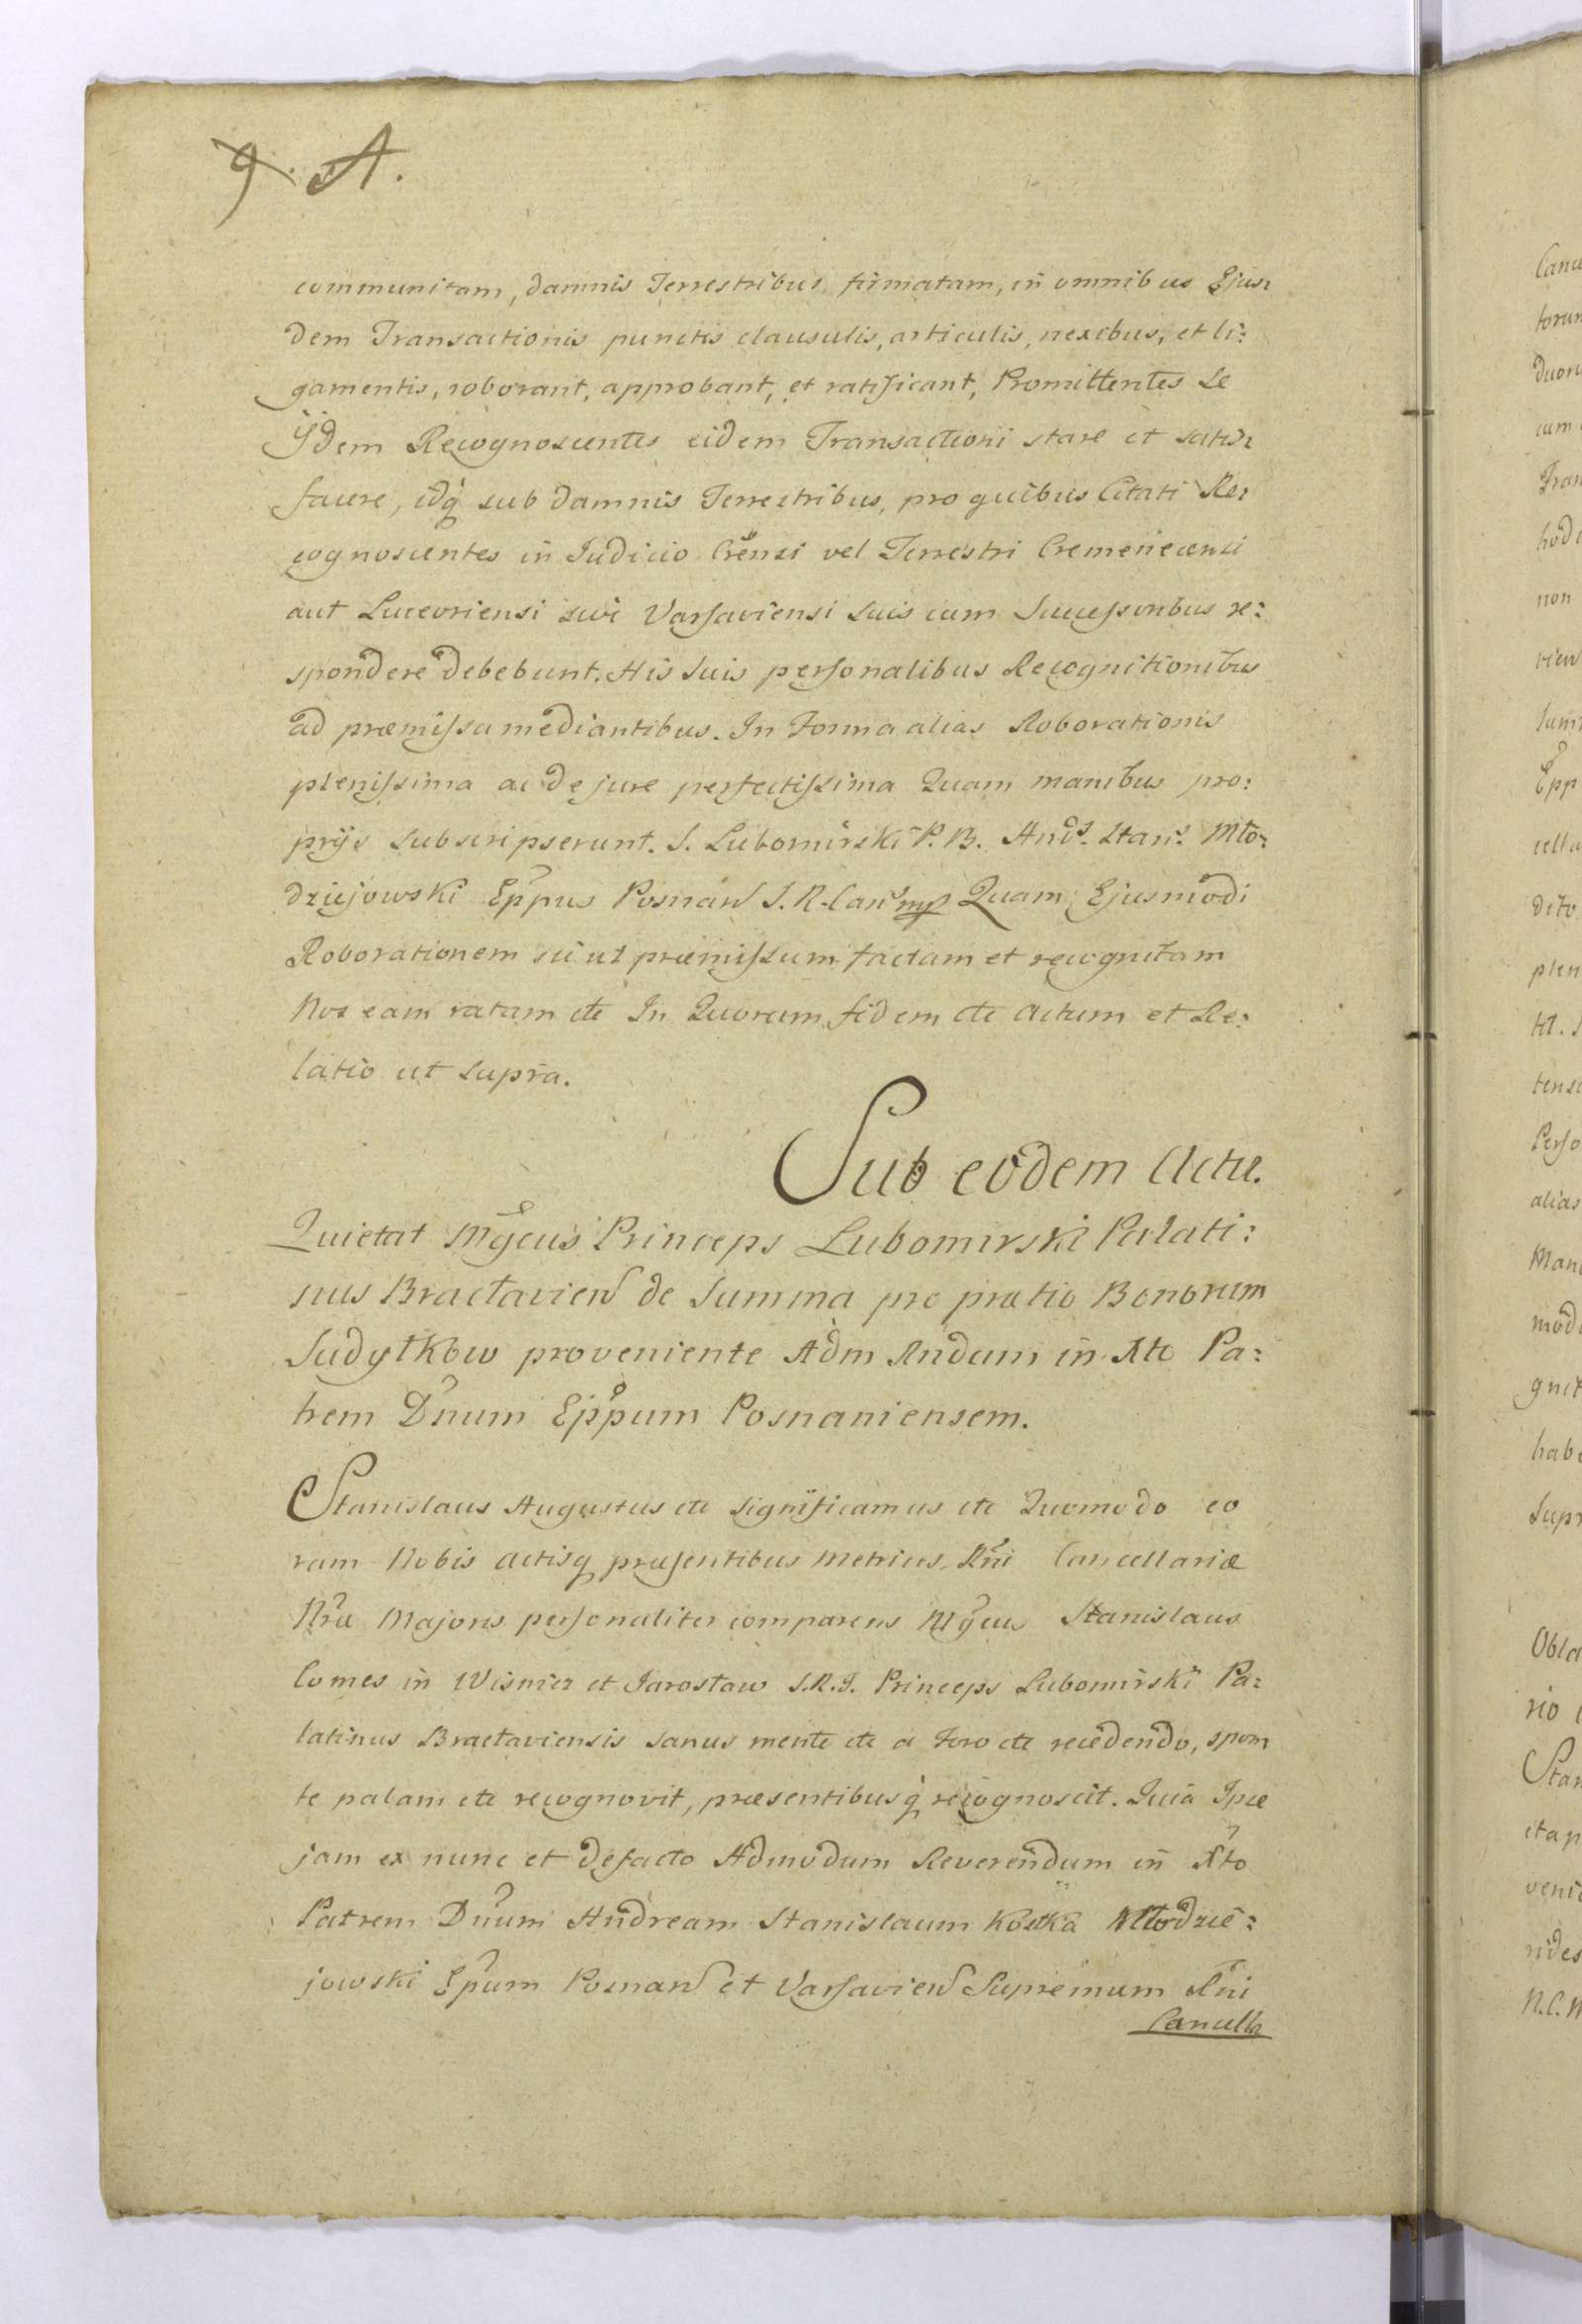 9. A.
communitam, damnis Terrestribus firmatam, in omnibus Ejus:
dem Transactionis punctis clausulis, articulis, nexibus, et li:
gamentis, roborant, approbant, et ratificant, Promittentes se
Ijdem Recognoscentes eidem Transactioni stare et satis:
facere, idq̀ sub damnis Terrestribus, pro quibus Citati Re:
cognoscentes in Judicio Crensi vel Terrestri Cremenecensi
aut Luceoriensi sivè Varsaviensi suis cum Successoribus re:
spondere debebunt. His suis personalibus Recognitionibus
ad præmissa mediantibus. In Forma alias Roborationis
plenissima ac de jure perfectissima Quam manibus pro:
prijs subscripserunt. S. Lubomirski P. B. Andr. Stan: Mło:
dziejowski Eppus Posnan S. R. Canc mp Quam Ejusmodi
Roborationem sic ut præmissum factam et recognitam
Nos eam ratam etc In Quorum fidem etc Actum et Re:
latio ut supra.
Sub eodem Actu.
Quietat Mgcus Princeps Lubomirski Palati:
nus Bractavien de Summa pro prætio Bonorum
Sudyłkow proveniente Adm Rndum in Xto Pa:
trem Dnum Eppum Posnaniensem.
Stanislaus Augustus etc significamus etc Quomodo co
ram Nobis actisq præsentibus Metrices Rni Cancellariæ
Nræ Majoris personaliter comparens Mgcus Stanislaus
Comes in Wisnicz et Jarosław S.R.I. Princeps Lubomirski Pa:
latinus Bractaviensis sanus mente etc a Foro etc recedendo, spon
te palam etc recognovit, præsentibusq̀ recognoscit. Quia Ipse
jam ex nunc et defacto Admodum Reverendum in Xto
Patrem Dnum Andream Stanislaum Kostka Młodzie:
jowski Epum Posnan et Varsavien Supremum Rni
Cancella